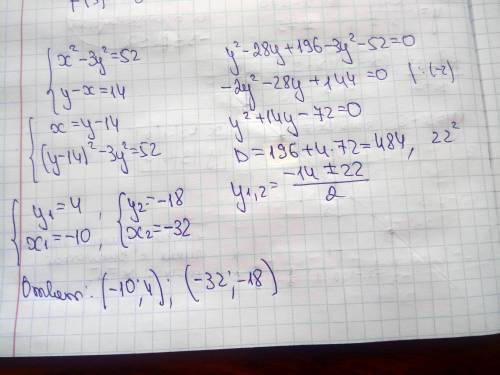 x²-3y²=52
y-x=14
x=y-14
(y-14)²-3y²=52
y²-28y+196-3y²-52=0
-2y²-28y+144=0 |:(-2)
y²+14y-72=0
D=196+4·72=484, 22²
y1,2=(-14±22)/2
y1=4, y2=-18
x1=-10, x2=-32
Ответ: (-10;4); (-32;-18)